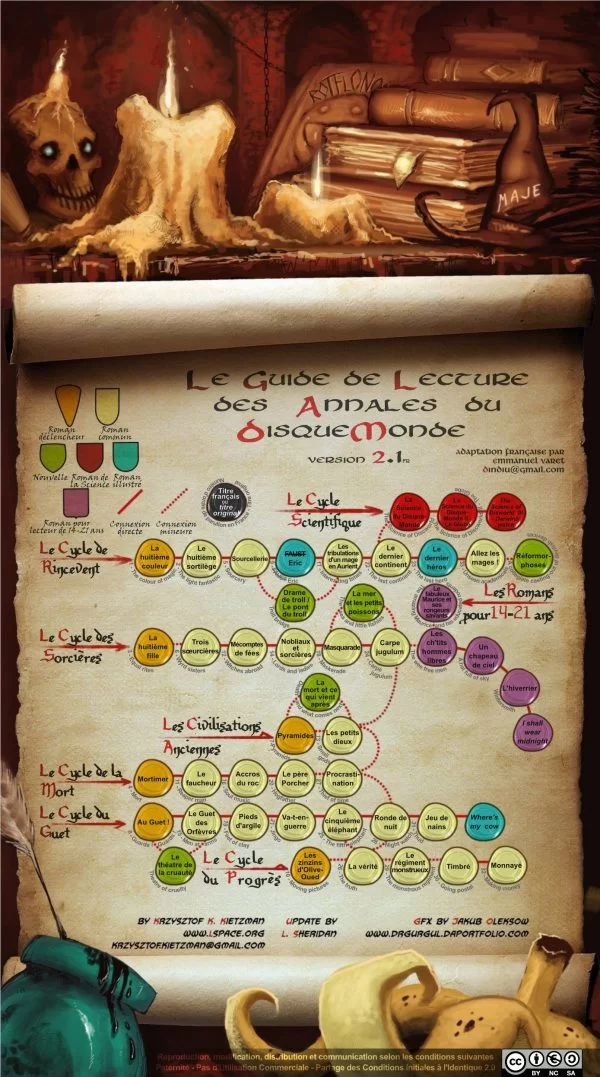 MAJE
Le Guide de Lecture
des Annales du
DisqueMonde
version 2.1fr
adaptation française par
emmanuel varet
dindiu@gmail.com
Roman
déclencheur
Roman
commun
Nouvelle
Roman de
la Science
Roman
illustré
Roman pour
lecteur de 14-21 ans
Connexion
directe
Connexion
mineure
Titre
français
ou
titre
original
Le Cycle
Scientifique
La
Science
du Disque-
Monde
Le Cycle de
Rincevent
La
huitième
couleur
Le
huitième
sortilège
Sourcellerie
FAUST
Eric
Les
tribulations
d'un mage
en Aurient
Le
dernier
continent
Le
dernier
héros
Allez les
mages !
Réformor-
phoses
Drame
de troll /
Le pont
du troll
La mer
et les petits
poissons
Le
fabuleux
Maurice et
ses
rongeurs
savants
Les Romans
pour 14-21 ans
Le Cycle des
Sorcières
La
huitième
fille
Trois
sœurcières
Mécomptes
de fées
Nobliaux
et
sorcières
Masquarade
Carpe
jugulum
Les
ch'tits
hommes
libres
Un
chapeau
de ciel
L'hiverrier
I shall
wear
midnight
La
mort et ce
qui vient
après
Les Civilisations
Anciennes
Pyramides
Les petits
dieux
Le Cycle de la
Mort
Mortimer
Le
faucheur
Accros
du roc
Le père
Porcher
Procrasti-
nation
Le Cycle du
Guet
Au Guet !
Le Guet
des
Orfèvres
Pieds
d'argile
Va-t-en-
guerre
Le
cinquième
éléphant
Ronde de
nuit
Jeu de
nains
Where's
my cow
Le
théâtre de
la cruauté
Le Cycle
du Progrès
Les
zinzins
d'Olive-
Oued
La vérité
Le
régiment
monstrueux
Timbré
Monnayé
by Krzysztof K. Kietzman
www.lspace.org
krzysztof.kietzman@gmail.com
update by
L. Sheridan
GFX by Jakub Oleksow
www.drgurgul.daportfolio.com
Reproduction, modification, distribution et communication selon les conditions suivantes
Paternité - Pas d'Utilisation Commerciale - Partage des Conditions Initiales à l'Identique 2.0
cc
BY NC SA